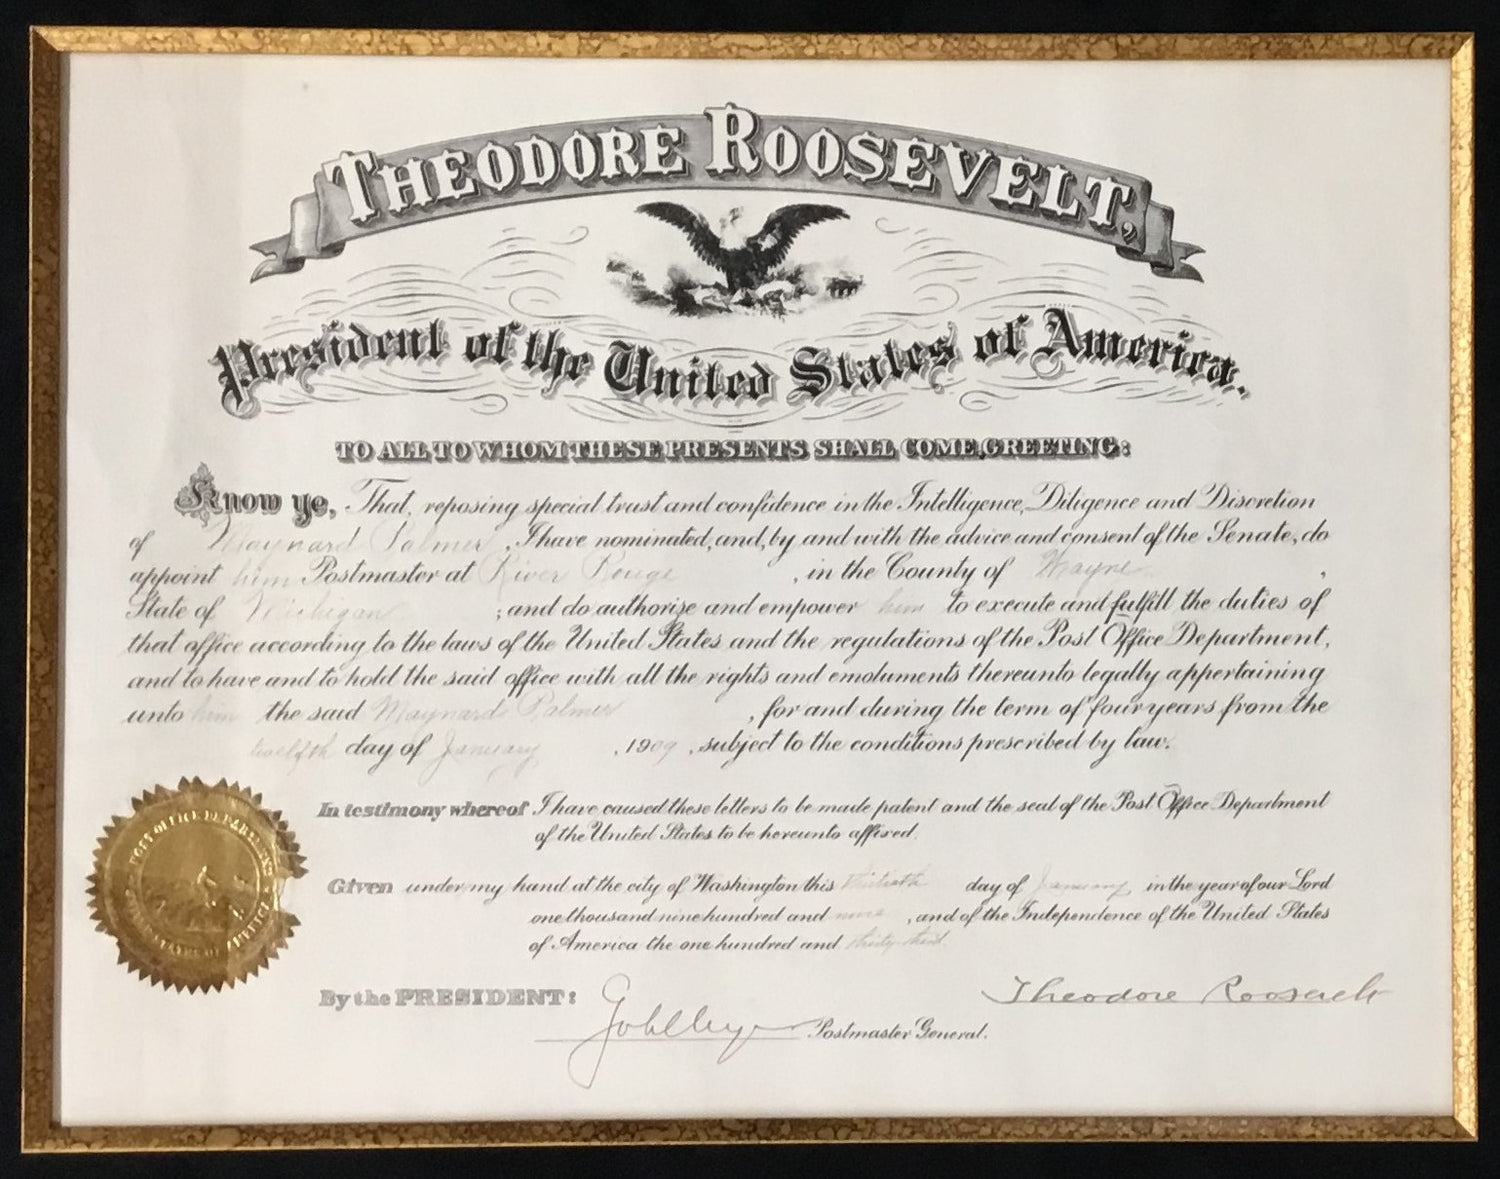 THEODORE ROOSEVELT,
President of the United States of America.
TO ALL TO WHOM THESE PRESENTS SHALL COME, GREETING:
Know ye, That, reposing special trust and confidence in the Intelligence, Diligence and Discretion
of Maynard Palmer, I have nominated, and, by and with the advice and consent of the Senate, do
appoint him Postmaster at River Rouge, in the County of Wayne,
State of Michigan; and do authorize and empower him to execute and fulfill the duties of
that office according to the laws of the United States and the regulations of the Post Office Department,
and to have and to hold the said office with all the rights and emoluments thereunto legally appertaining
unto him the said Maynard Palmer, for and during the term of four years from the
twelfth day of January, 1909, subject to the conditions prescribed by law.
In testimony whereof I have caused these letters to be made patent and the seal of the Post Office Department
of the United States to be hereunto affixed.
Given under my hand at the city of Washington this thirtieth day of January in the year of our Lord
one thousand nine hundred and nine, and of the Independence of the United States
of America the one hundred and thirty-third.
POST OFFICE DEPARTMENT
UNITED STATES OF AMERICA
Theodore Roosevelt
By the PRESIDENT:
Postmaster General.